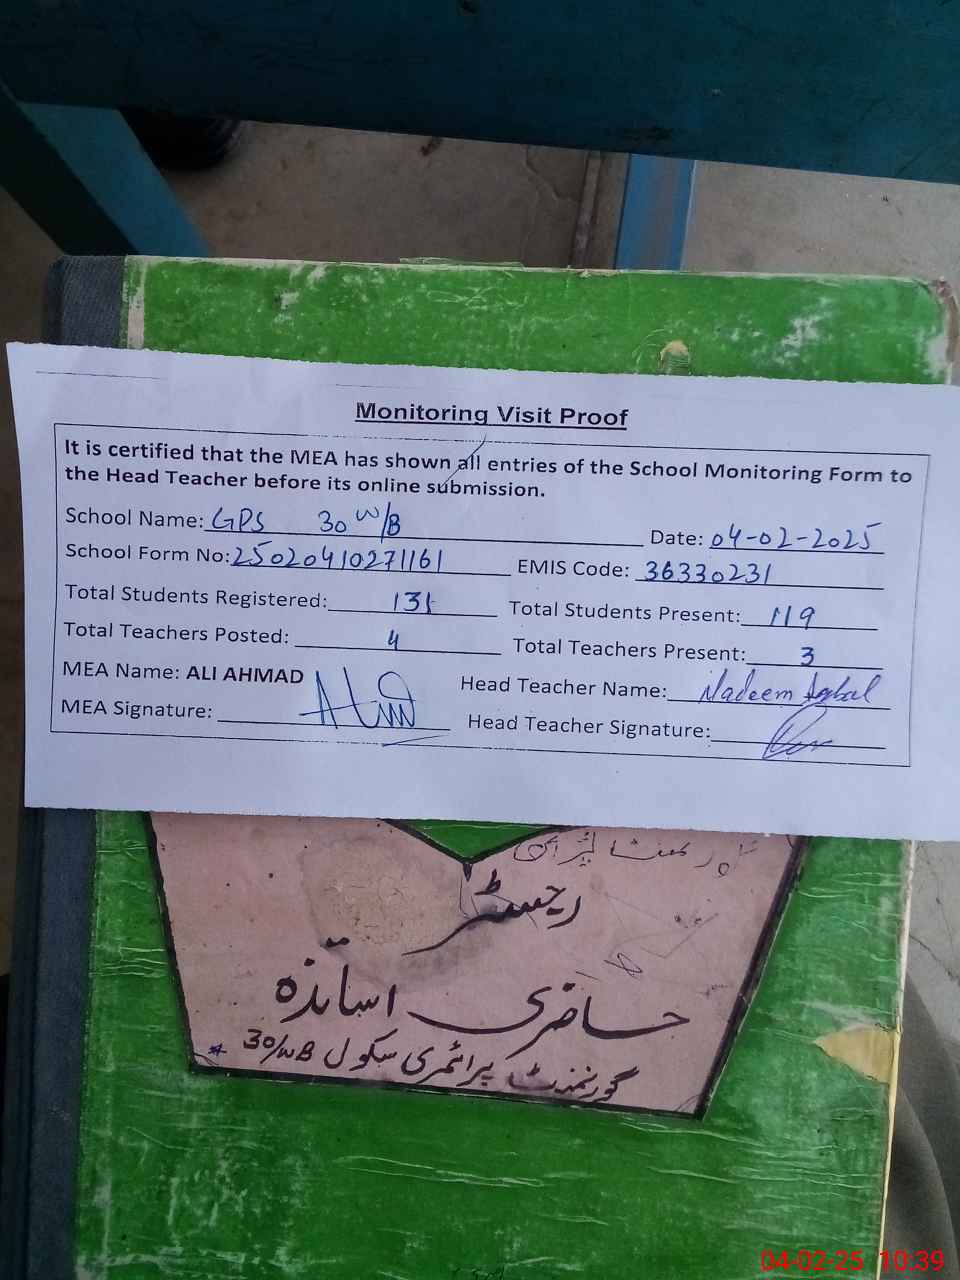 Monitoring Visit Proof
It is certified that the MEA has shown all entries of the School Monitoring Form to
the Head Teacher before its online submission.
School Name: GPS 30 W/B Date: 04-02-2025
School Form No: 25020410271161 EMIS Code: 36330231
Total Students Registered: 131 Total Students Present: 119
Total Teachers Posted: 4 Total Teachers Present: 3
MEA Name: ALI AHMAD Head Teacher Name: Nadeem Iqbal
MEA Signature: Head Teacher Signature:
رجسٹر
حاضری اساتذہ
گورنمنٹ پرائمری سکول 30/WB
04-02-25 10:39